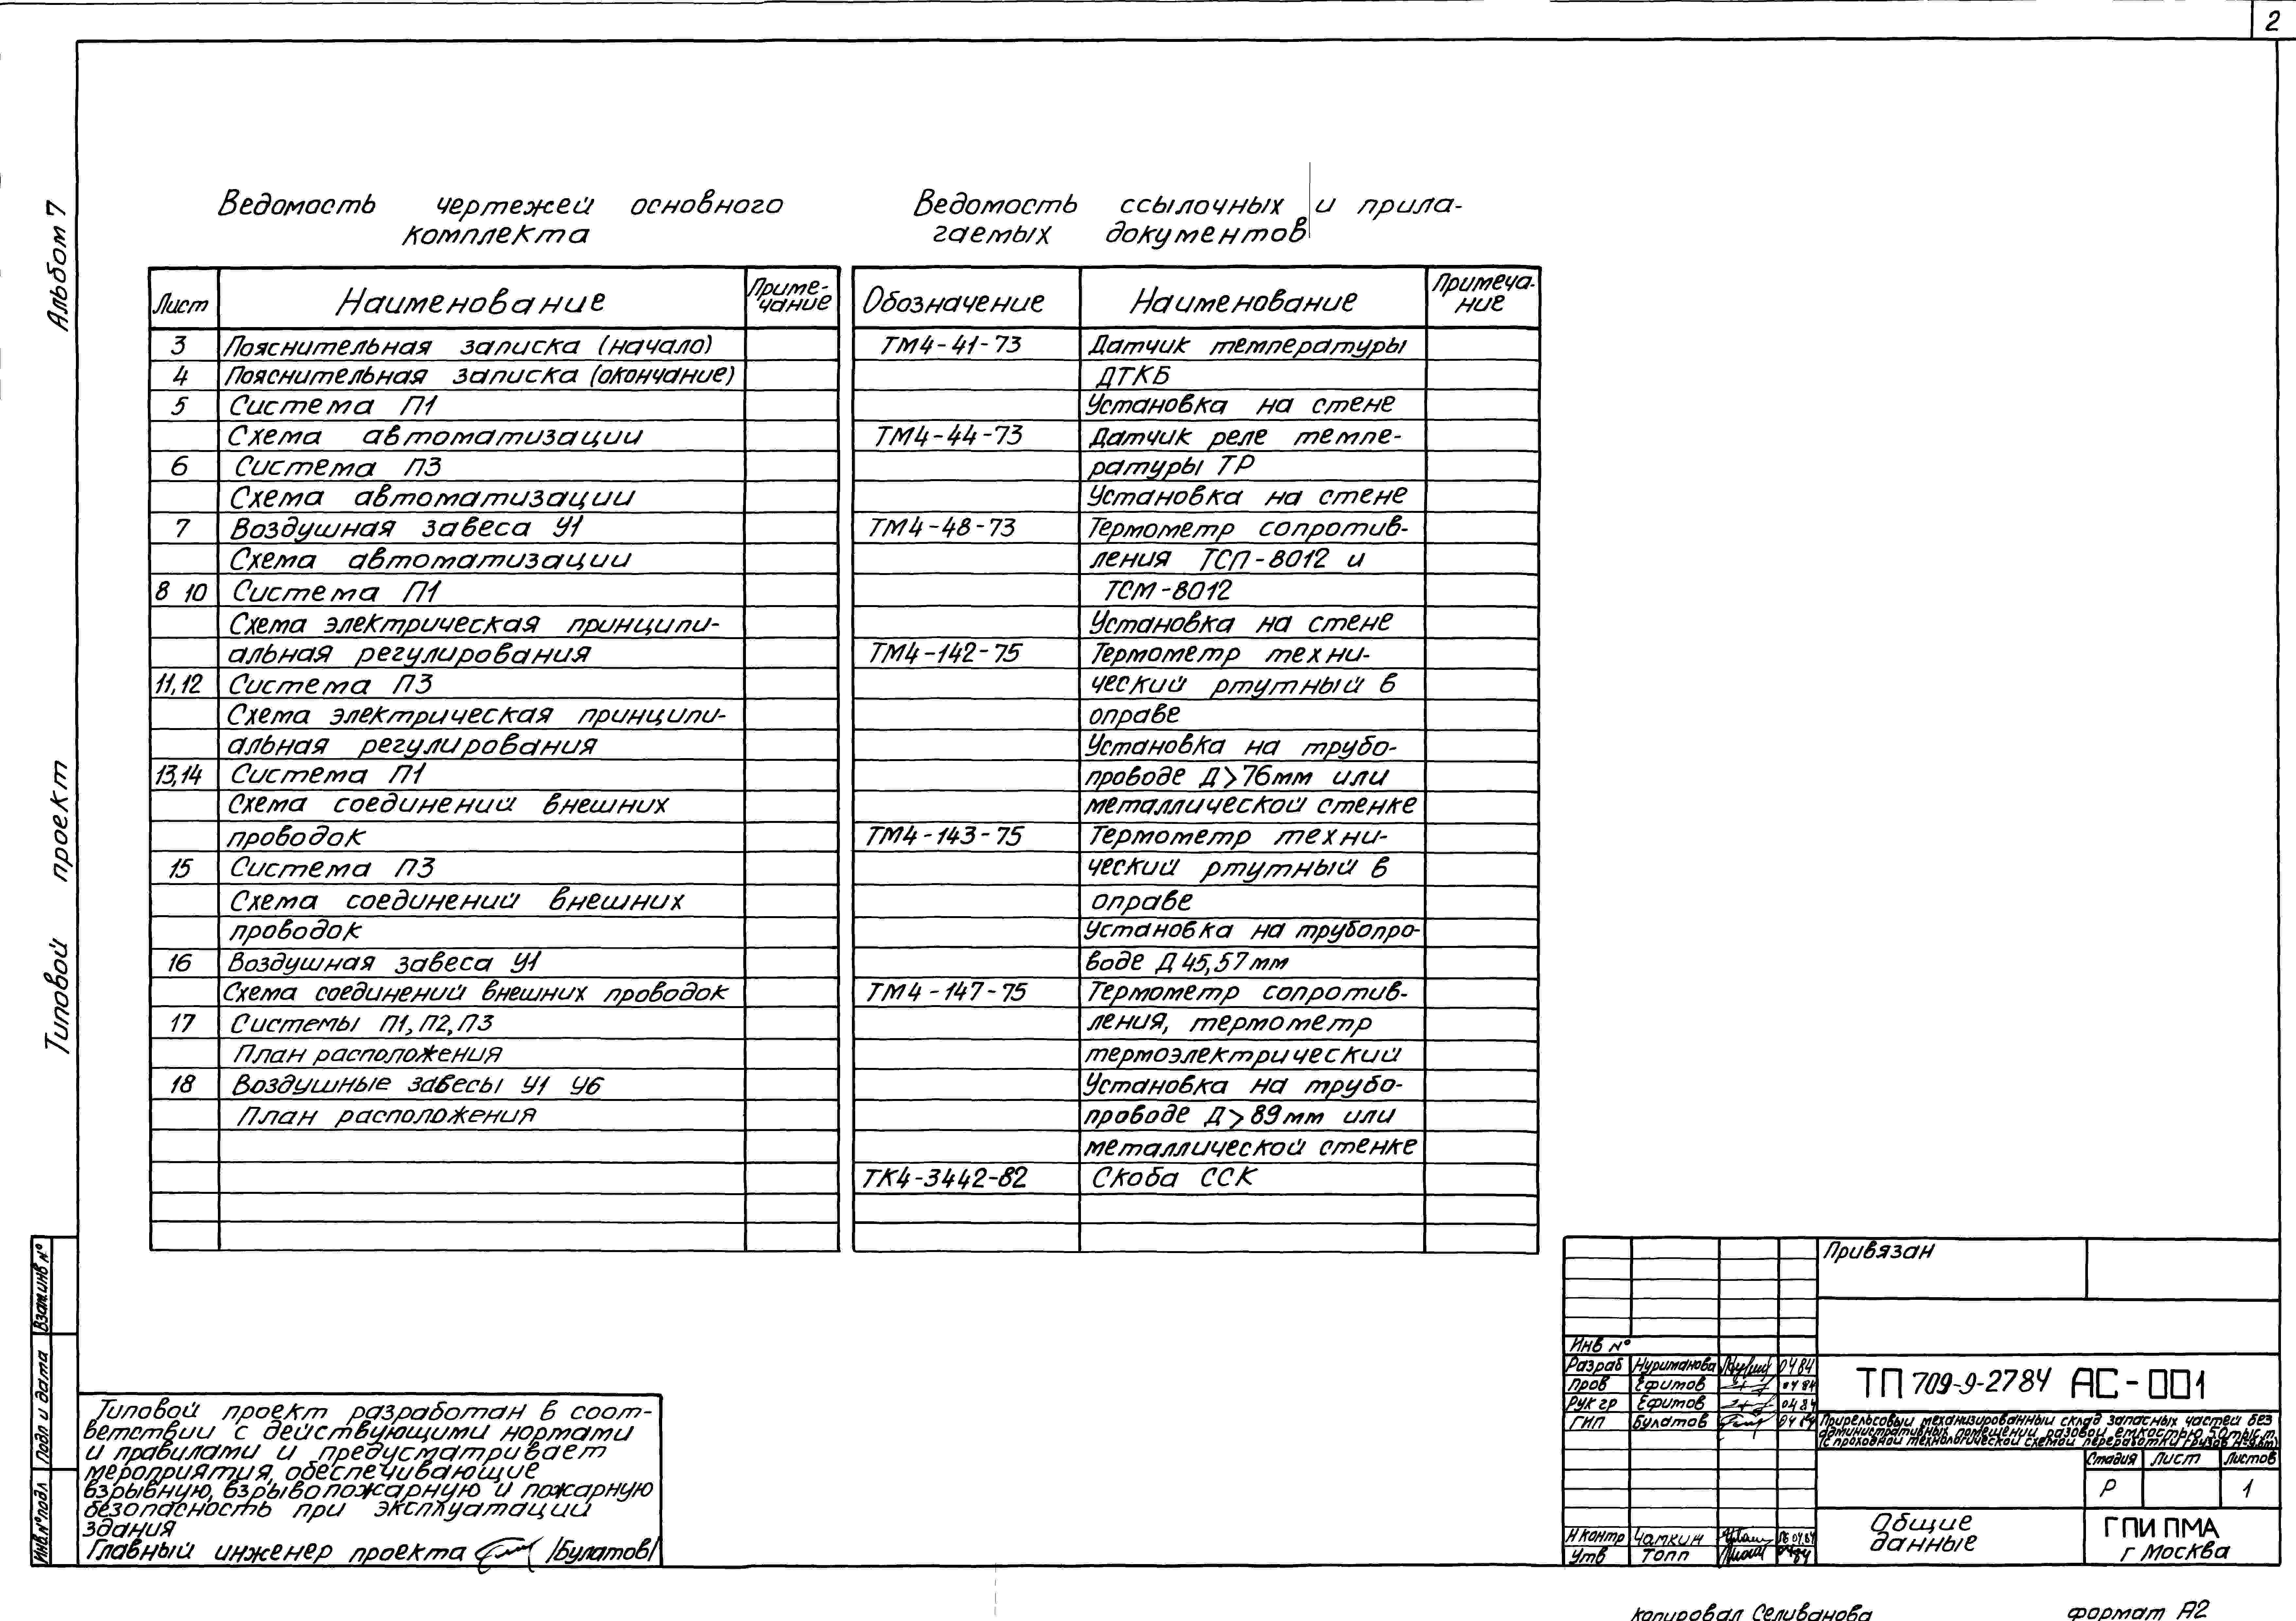 2
Альбом 7
Типовой проект
Взам.инв №
Подп и дата
Инв.№подл
Ведомость чертежей основного
комплекта
Лист Наименование Приме-
чание
3 Пояснительная записка (начало)
4 Пояснительная записка (окончание)
5 Система П1
Схема автоматизации
6 Система П3
Схема автоматизации
7 Воздушная завеса У1
Схема автоматизации
8 10 Система П1
Схема электрическая принципи-
альная регулирования
11,12 Система П3
Схема электрическая принципи-
альная регулирования
13,14 Система П1
Схема соединений внешних
проводок
15 Система П3
Схема соединений внешних
проводок
16 Воздушная завеса У1
Схема соединений внешних проводок
17 Системы П1, П2, П3
План расположения
18 Воздушные завесы У1 У6
План расположения
Ведомость ссылочных и прила-
гаемых документов
Обозначение Наименование Примеча-
ние
ТМ4-41-73 Датчик температуры
ДТКБ
Установка на стене
ТМ4-44-73 Датчик реле темпе-
ратуры ТР
Установка на стене
ТМ4-48-73 Термометр сопротив-
ления ТСП-8012 и
ТСМ-8012
Установка на стене
ТМ4-142-75 Термометр техни-
ческий ртутный в
оправе
Установка на трубо-
проводе Д>76мм или
металлической стенке
ТМ4-143-75 Термометр техни-
ческий ртутный в
оправе
Установка на трубопро-
воде Д 45,57мм
ТМ4-147-75 Термометр сопротив-
ления, термометр
термоэлектрический
Установка на трубо-
проводе Д>89мм или
металлической стенке
ТК4-3442-82 Скоба ССК
Типовой проект разработан в соот-
ветствии с действующими нормами
и правилами и предусматривает
мероприятия, обеспечивающие
взрывную, взрывопожарную и пожарную
безопасность при эксплуатации
здания
Главный инженер проекта /Булатов/
Привязан
Инв №
Разраб Нуриманова 04 84
Пров Ефимов 04 84
Рук гр Ефимов 04 84
ГИП Булатов 04 84
Н контр Чапкин 04.84
Утв Топп 84
ТП 709-9-27 84 АС-001
Прирельсовый механизированный склад запасных частей без
административных помещений разовой емкостью 5,0 тыс.т.
(с проходной технологической схемой переработки грузов
Стадия Лист Листов
Р 1
Общие
данные
ГПИ ПМА
г Москва
Копировал Селиванова
формат А2